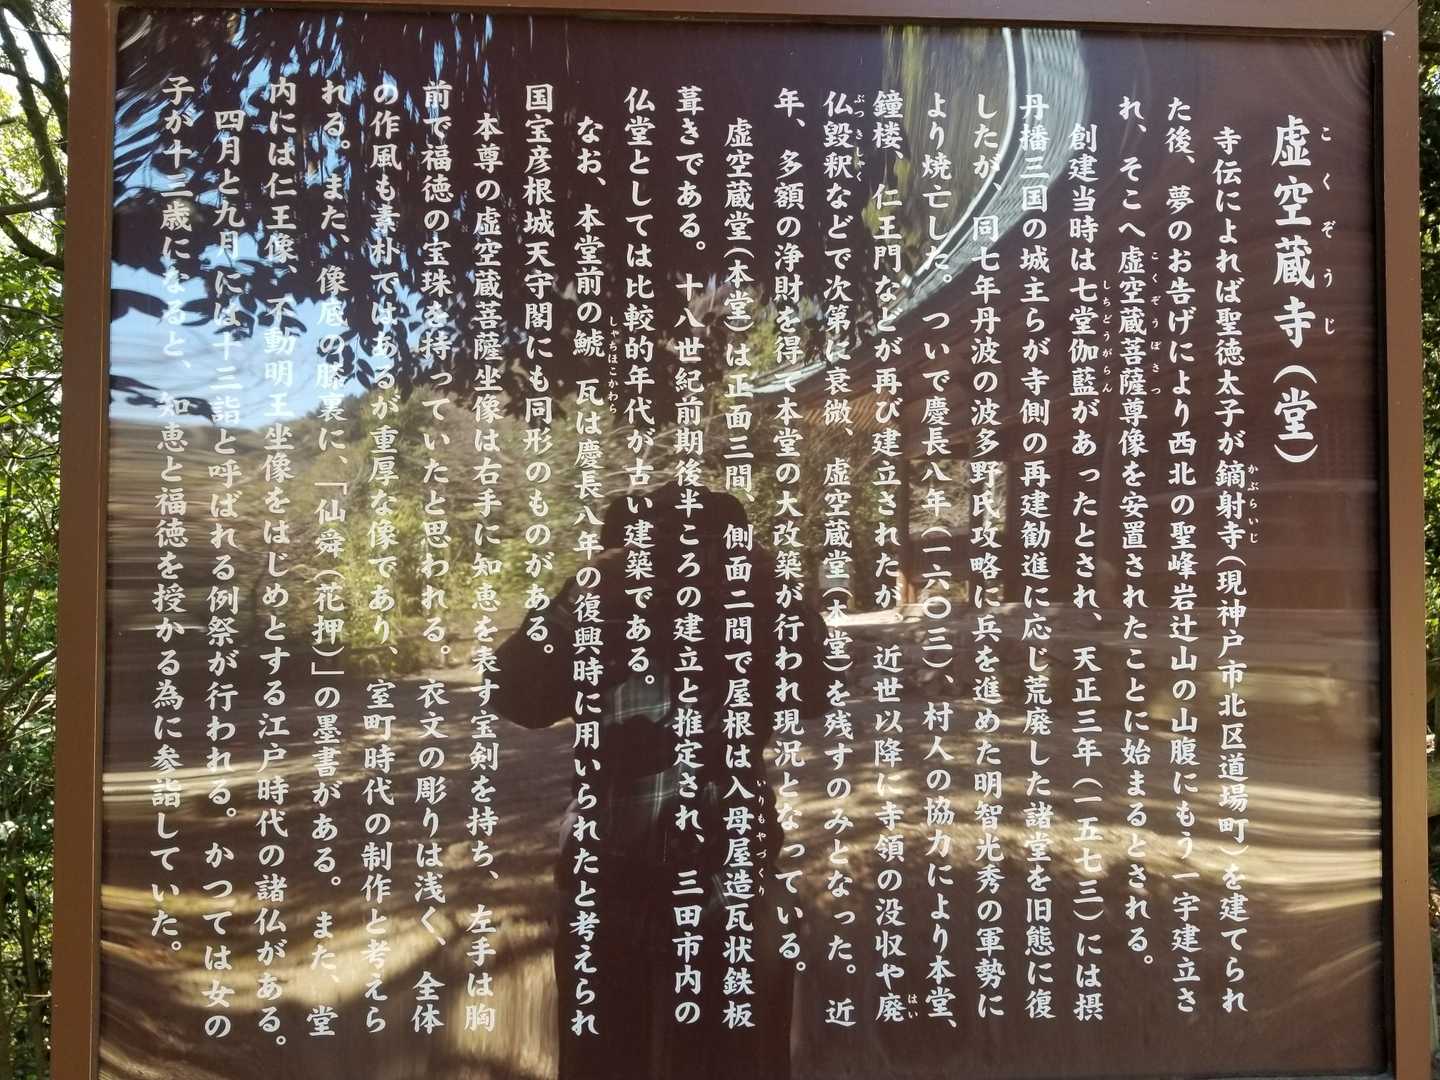 虚空蔵寺（堂）
こくぞうじ
寺伝によれば聖徳太子が鏑射寺（現神戸市北区道場町）を建てられ
かぶらいじ
た後、夢のお告げにより西北の聖峰岩辻山の山腹にもう一宇建立さ
れ、そこへ虚空蔵菩薩尊像を安置されたことに始まるとされる。
こくぞうぼさつ
創建当時は七堂伽藍があったとされ、天正三年（一五七三）には摂
しちどうがらん
丹播三国の城主らが寺側の再建勧進に応じ荒廃した諸堂を旧態に復
したが、同七年丹波の波多野氏攻略に兵を進めた明智光秀の軍勢に
より焼亡した。ついで慶長八年（一六〇三）、村人の協力により本堂、
鐘楼、仁王門などが再び建立されたが、近世以降に寺領の没収や廃
はい
仏毀釈などで次第に衰微、虚空蔵堂（本堂）を残すのみとなった。近
ぶつきしゃく
年、多額の浄財を得て本堂の大改築が行われ現況となっている。
虚空蔵堂（本堂）は正面三間、側面二間で屋根は入母屋造瓦状鉄板
いりもやづくり
葺きである。十八世紀前期後半ころの建立と推定され、三田市内の
仏堂としては比較的年代が古い建築である。
なお、本堂前の鯱瓦は慶長八年の復興時に用いられたと考えられ
しゃちほこかわら
国宝彦根城天守閣にも同形のものがある。
本尊の虚空蔵菩薩坐像は右手に知恵を表す宝剣を持ち、左手は胸
前で福徳の宝珠を持っていたと思われる。衣文の彫りは浅く、全体
の作風も素朴ではあるが重厚な像であり、室町時代の制作と考えら
れる。また、像底の膝裏に、「仙舜（花押）」の墨書がある。また、堂
内には仁王像、不動明王坐像をはじめとする江戸時代の諸仏がある。
四月と九月には十三詣と呼ばれる例祭が行われる。かつては女の
子が十三歳になると、知恵と福徳を授かる為に参詣していた。